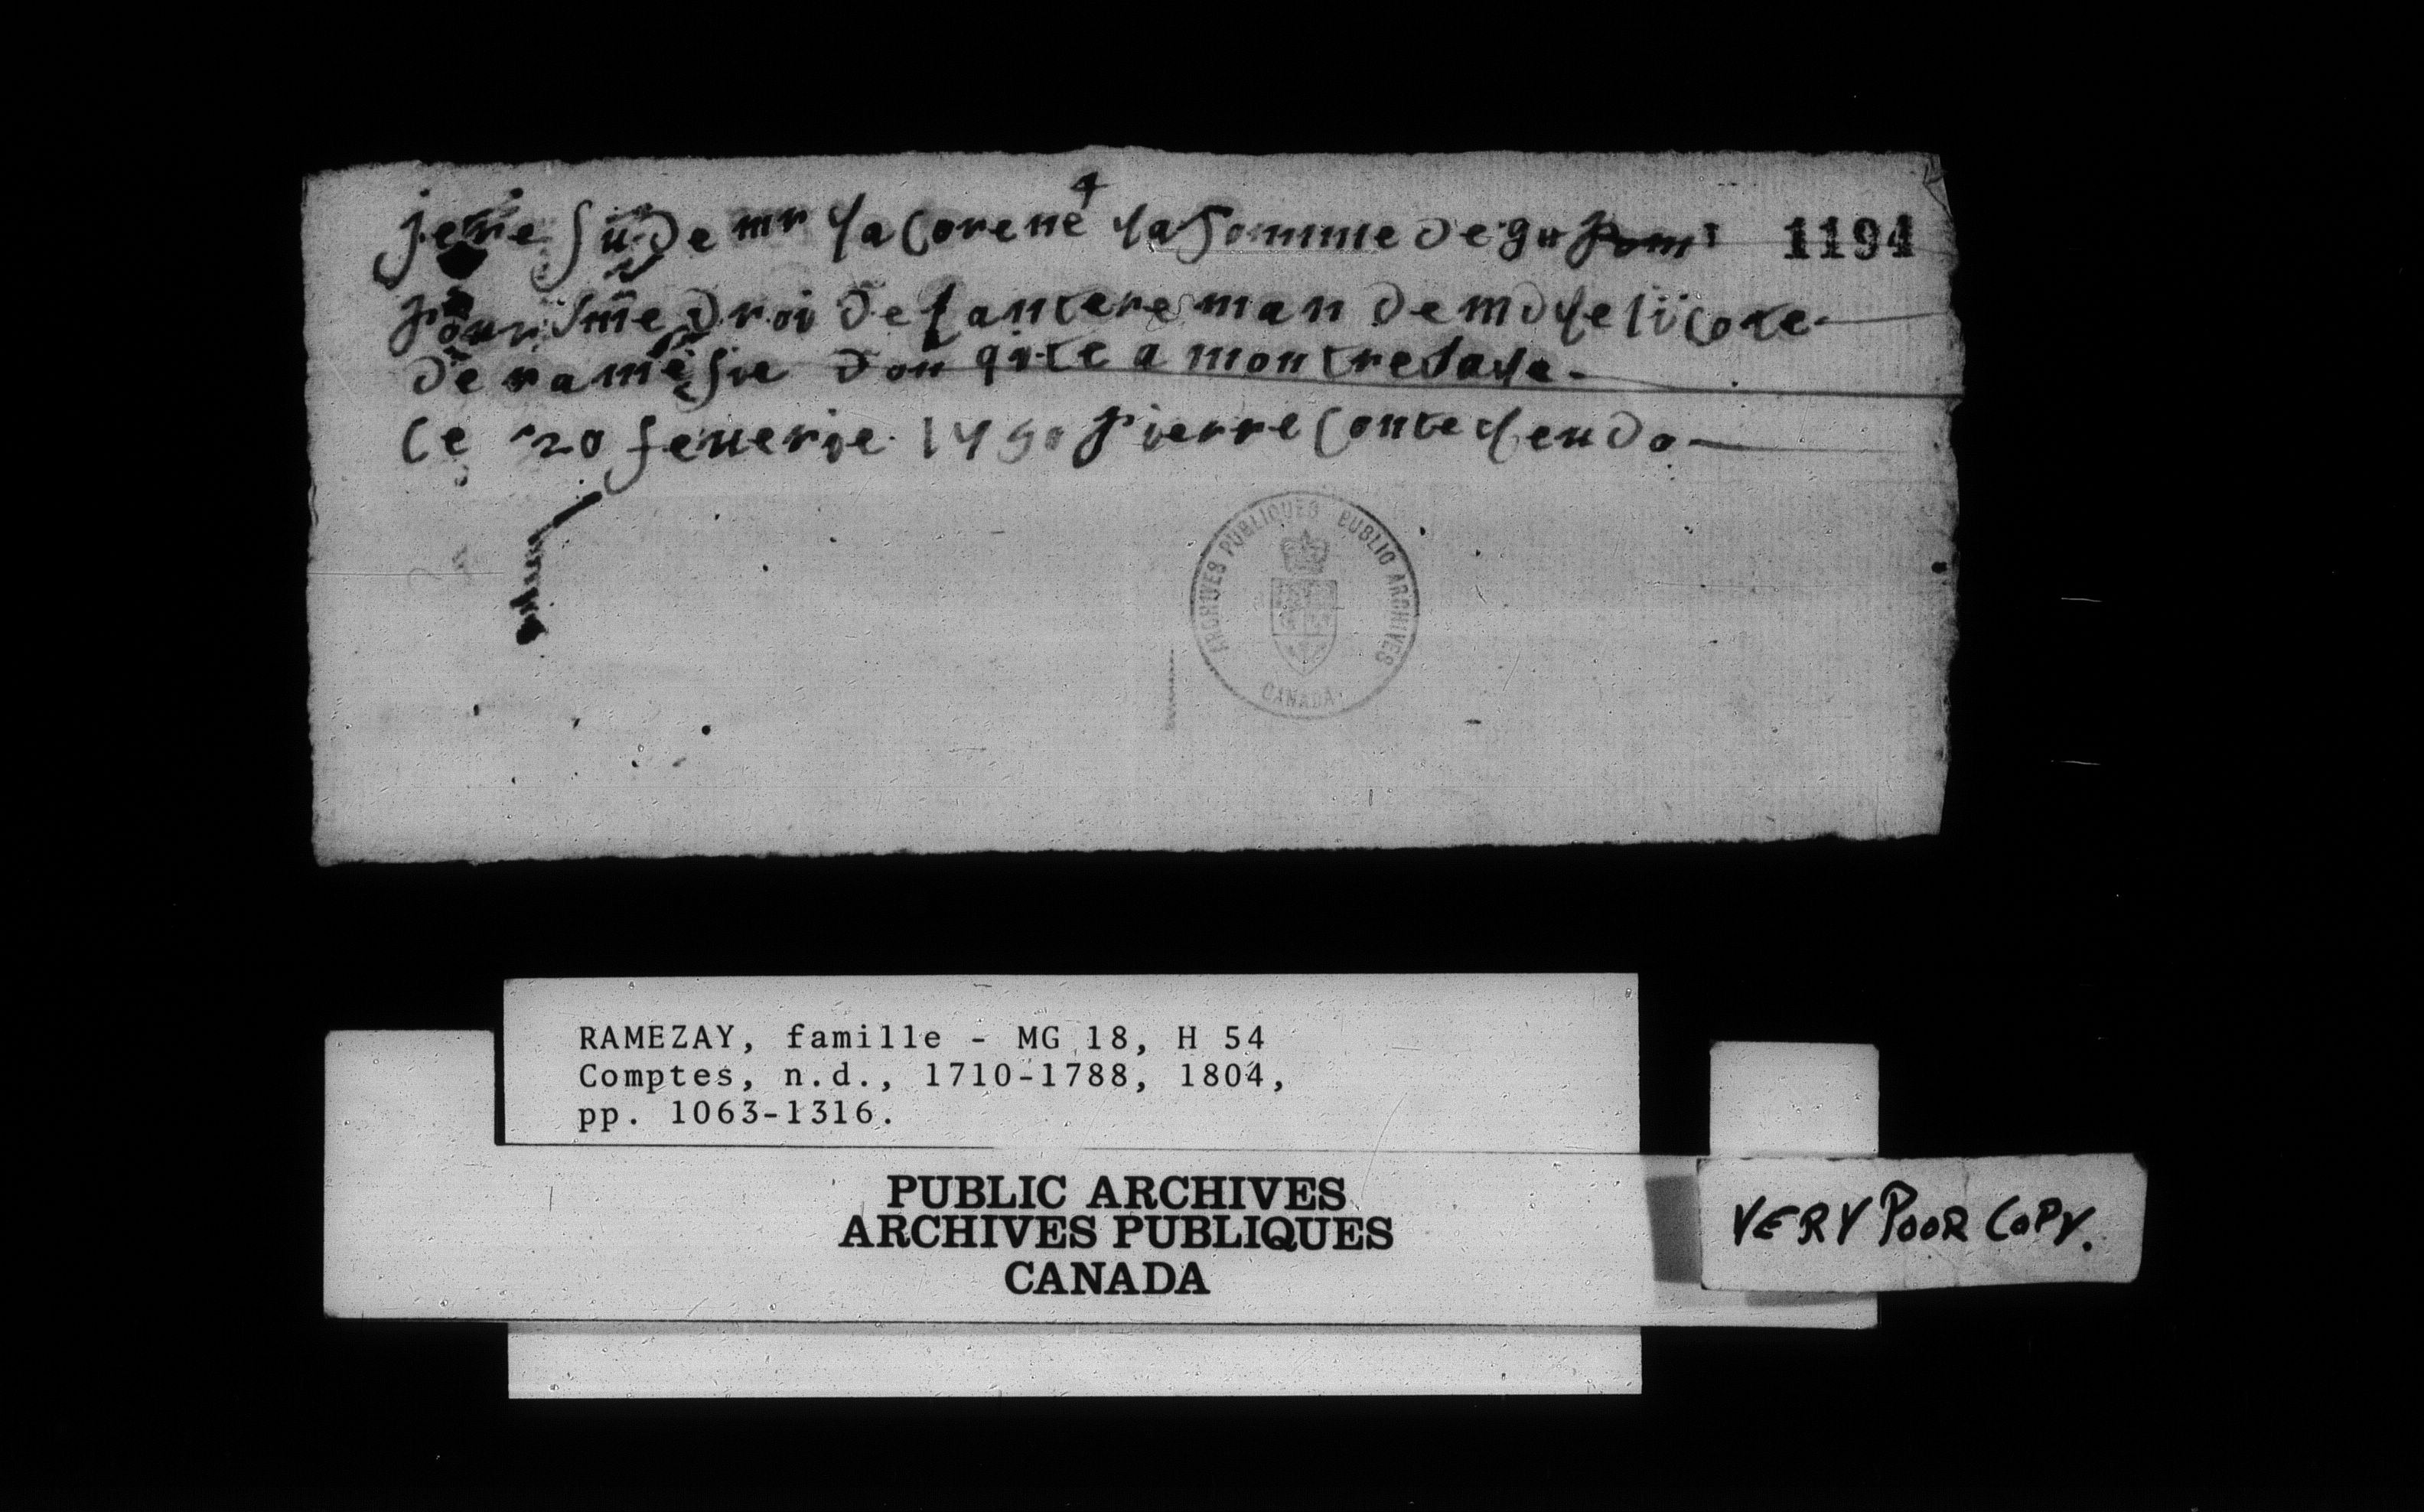 4
je re su de mr la Corene la somme de 9tt 1194
pour me droi de lantereman de mdselicote
de ramesie don qite a montreiale
Ce 20 feuerie 1750 pierre Conte fendo
ARCHIVES PUBLIQUES PUBLIC ARCHIVES
CANADA
RAMEZAY, famille - MG 18, H 54
Comptes, n.d., 1710-1788, 1804,
pp. 1063-1316.
PUBLIC ARCHIVES
ARCHIVES PUBLIQUES
CANADA
VERY POOR COPY.